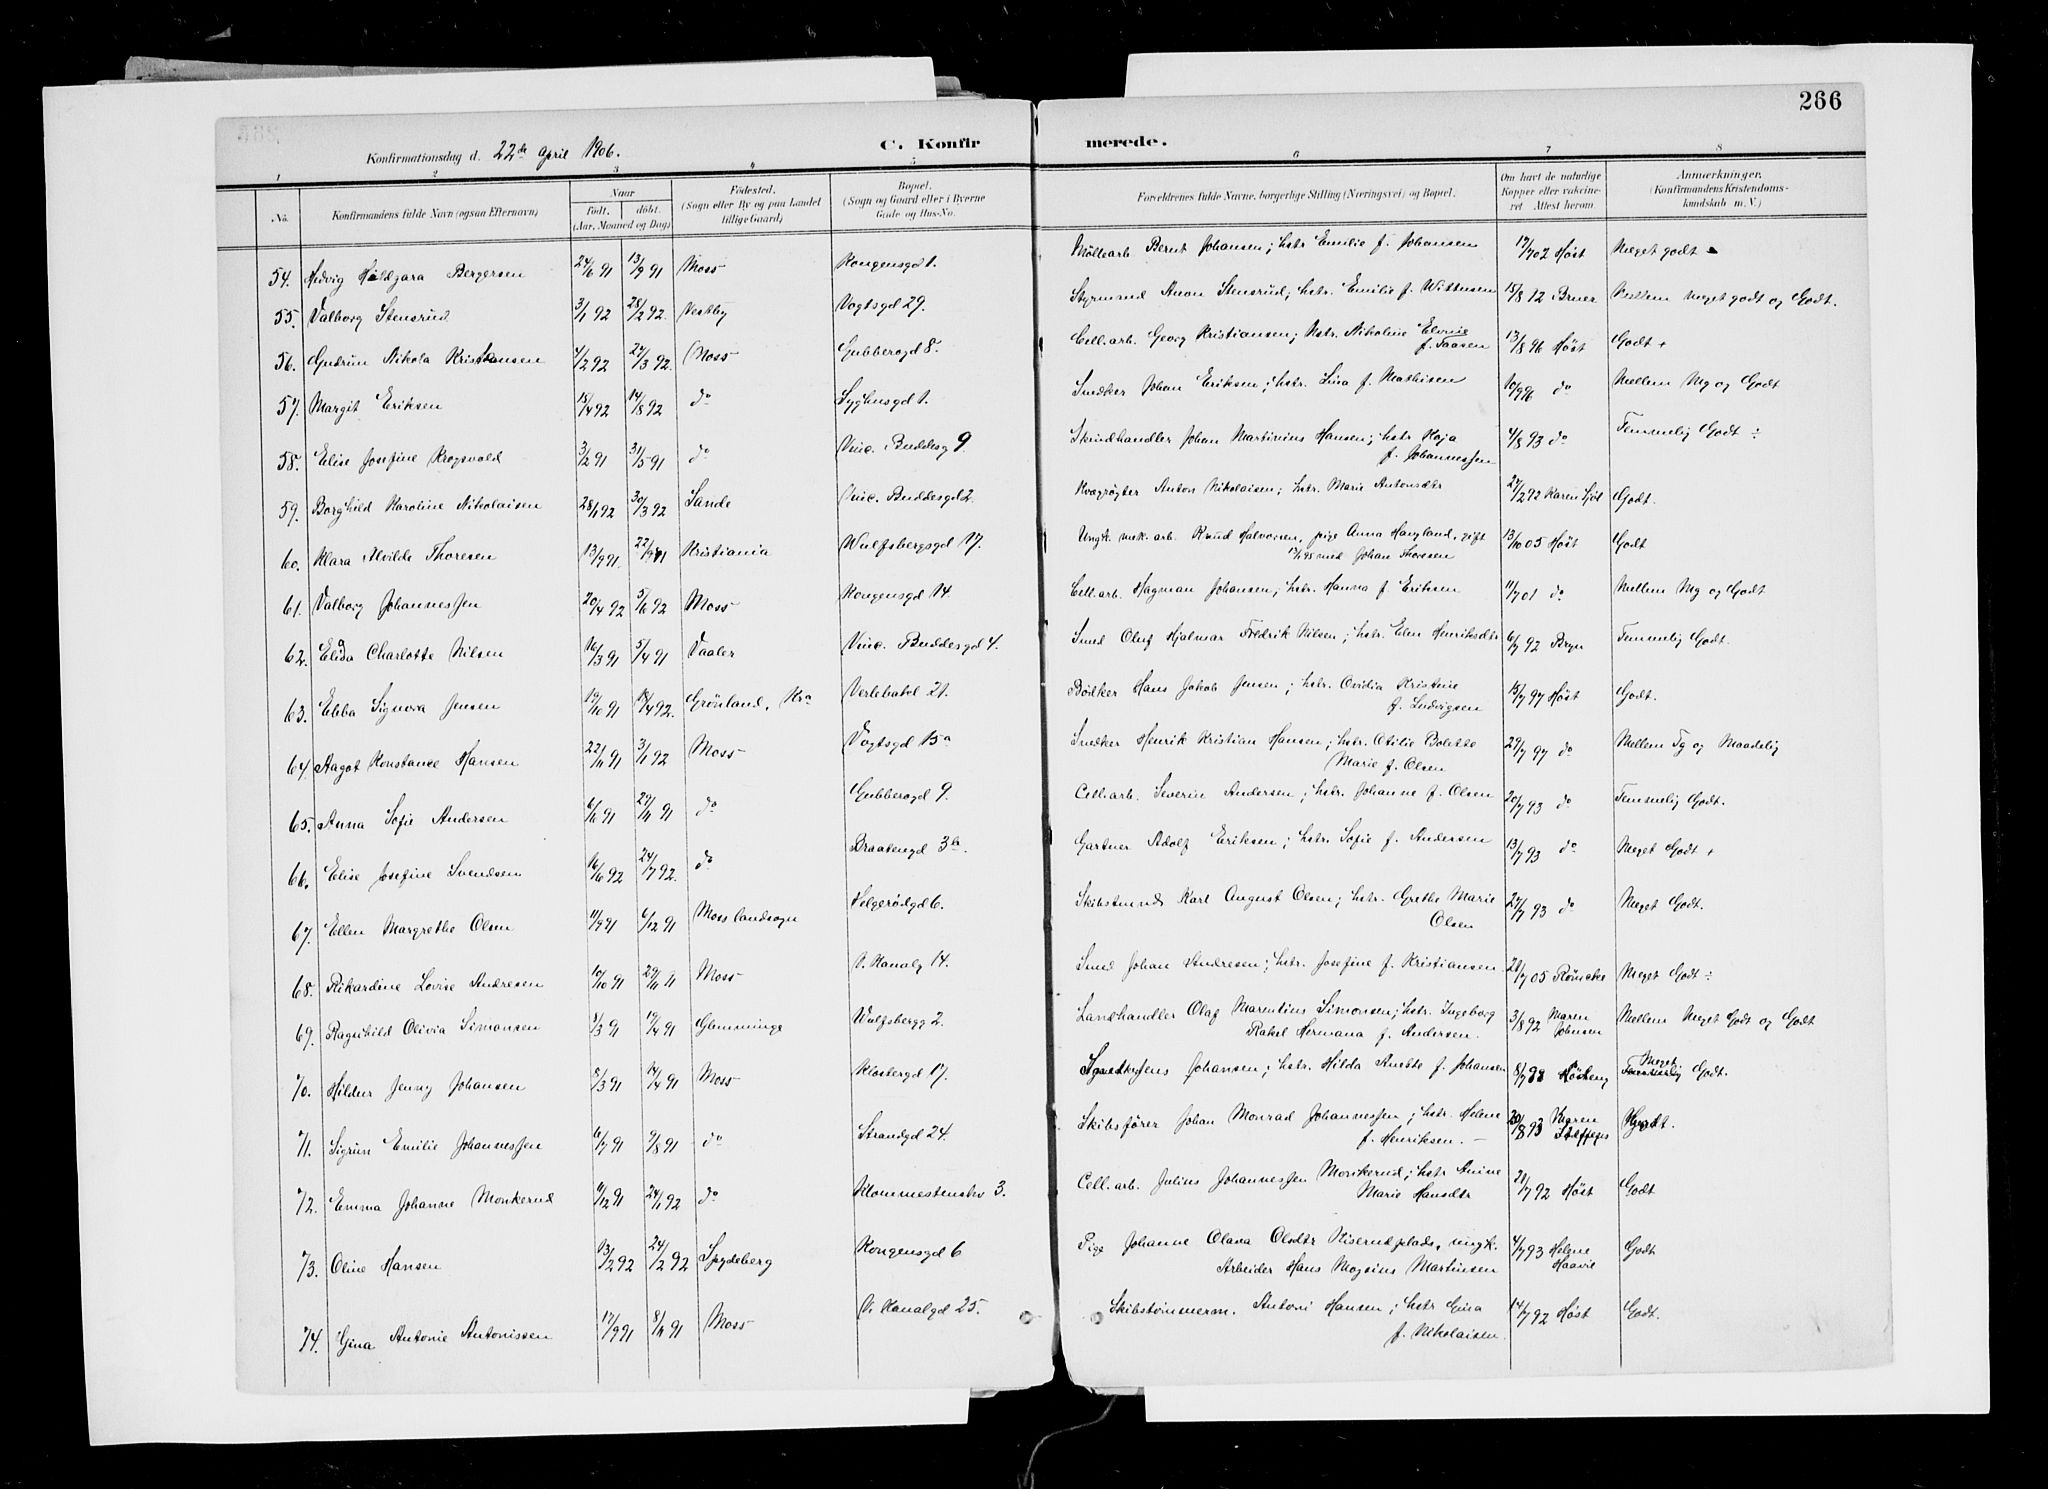 266
Konfirmationsdag d. 22de April 1906.
C. Konfir merede.
1 2 3 4 5 6 7 8
No. Konfirmandens fulde Navn (ogsaa Efternavn) Naar født. døbt. (Aar, Maaned og Dag) Fødested. (Sogn eller By og paa Landet tillige Gaard) Bopæl. (Sogn og Gaard eller i Byerne Gade og Hus-No. Forældrenes fulde Navne, borgerlige Stilling (Næringsvei) og Bopæl. Om havt de naturlige Kopper eller vaccineret. Attest herom. Anmærkninger. (Konfirmandens Kristendomskundskab m. V.)
54. Hedvig Hildgara Bergersen 24/6 91 13/9 91 Moss Kongensgd 1. Møllearb. Bernt Johansen; hstr Emilie f. Johansen 17/7 02 Høst Meget godt -
55. Valborg Stensrud 3/1 92 28/2 92. Vestby Vogtsgd 29. Styrmand Anon Stensrud; hstr. Emilie f. Wittusen 15/8 92 Bruer Mellem Meget godt og Godt.
56. Gudrun Nikola Kristiansen 4/2 92 27/3 92. Moss Gubberogd 8. Cell.arb. Georg Kristiansen; Hstr. Nikoline Elvine f. Taasen 13/8 96 Høst Godt +
57. Margit Eriksen 18/4 92 14/8 92 do Syghusgd 1. Snedker Johan Eriksen; hstr. Lina f. Mathisen 10/9 96 do Mellem Mg og Godt
58. Elise Josefine Krogsvold 3/2 91 31/5 91 do Vinc. Buddesg 9. Skindhandler Johan Martinius Hansen; hstr Kaja f. Johannesen 4/8 93 do Temmelig Godt ÷
59. Borghild Karoline Nikolaisen 28/1 92 30/3 92 Sande Vinc. Buddesgd 2. Kvægrøgter Anton Nikolaisen; hstr. Marie Antonsdtr 27/2 92 Karen Godt.
60. Klara Alvilde Thoresen 13/9 91. 22/11 91 Kristiania Wulfsbergsgd 17. Ungk. mek. arb. Knud Halvorsen, pige Anna Haugland, gift med Johan Thoresen 13/10 05 Høst Godt
61. Valborg Johannessen 20/4 92 5/6 92 Moss Kongensgd 14. Cell.arb. Hagman Johansen; hstr. Hanna f. Eriksen 11/7 01 do Mellem Mg og Godt
62. Elida Charlotte Nilsen 16/3 91 5/4 91 Vaaler Vinc. Buddesgd 4. Smed Oluf Hjalmar Fredrik Nilsen; hstr. Elen Henriksdtr 6/7 92 Bryn Temmelig Godt.
63. Ebba Signora Jensen 19/10 91 18/4 92. Grønland, Kra Verlebakl 21. Bødker Hans Jakob Jensen; hstr. Ovidia Kristine f. Ludvigsen 15/7 97 Høst Godt.
64. Aagot Konstance Hansen 22/11 91 3/1 92 Moss Vogtsgd 15a Snedker Henrik Kristian Hansen; hstr. Otilie Bolette Marie f. Olsen 29/7 97 do Mellem Tg og Maadelig
65. Anna Sofie Andersen 6/6 91 29/11 91 do Gubberogd 9. Cell.arb. Severin Andersen; hstr. Johanne f. Olsen 20/7 93 do Temmelig Godt.
66. Elise Josefine Svendsen 16/6 92 24/7 92. do Braatengd 3b. Gartner Adolf Eriksen; hstr. Sofie f. Andersen 13/7 93 do Meget Godt +
67. Ellen Margrethe Olsen 11/9 91 6/12 91 Moss landsogn Velgerødgd 6. Skibstmnd Karl August Olsen; hstr. Grethe Marie Olsen 27/7 93 do Meget Godt.
68. Rikardine Lovise Andresen 10/10 91 29/11 91 Moss V. Kanalg 14. Smed Johan Andresen; hstr. Josefine f. Kristiansen. 28/7 05 Meget Godt ÷
69. Ragnhild Olivia Simonsen 5/3 91 19/4 91 Glemminge Wulfsbergg 2. Landhandler Olaf Marentius Simonsen; hstr. Ingeborg Rakel Hermana f. Andersen. 3/8 92 Maren Johnsen Mellem Meget Godt og Godt
70. Hildur Jenny Johansen 8/3 91 14/4 91 Moss Klostergd 17. Jens Johansen; hstr. Hilda Anette f. Johansen 8/7 98 Høst Meget Godt.
71. Sigrun Emilie Johannessen 6/7 91 9/8 91 do Strandgd 24. Skibsfører Johan Monrad Johannessen; hstr. Helene f. Henriksen. 20/8 93 Karen
72. Emma Johanne Monkerud 11/12 91 24/1 92 do Klommestensbv 3. Cell.arb. Julius Johannessen Monkerud; hstr Anine Marie Hansdtr 28/7 92 Høst Godt
73. Oline Hansen 13/2 92 24/2 92 Spydeberg Kongensgd 6 Pige Johanne Olava Olsdtr Riserudplads, ungk. Arbeider Hans Mogsius Martinsen 4/7 93 Helene Haavie Godt
74. Gina Antonie Antonissen 17/9 91 8/11 91 Moss V. Kanalgd 25. Skibstømmerm. Antoni Hansen; hstr Gina f. Nikolaisen. 14/7 92 Høst Godt.